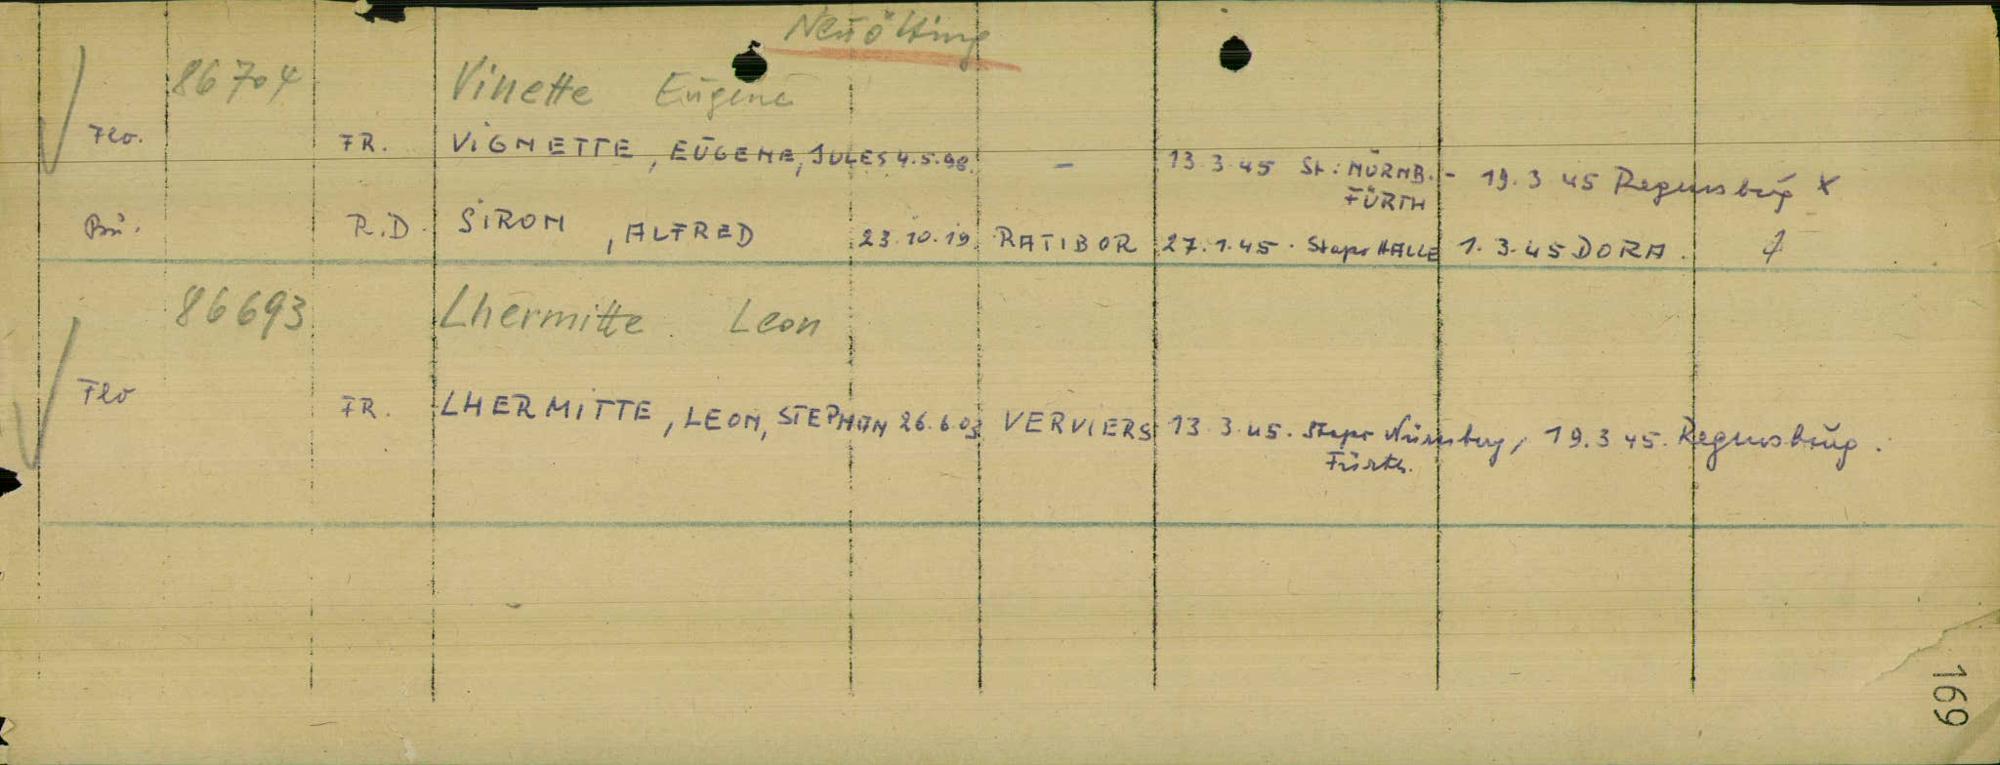 Neuötting
86704 Vinette Eugene
Flo. FR. VIGNETTE, EUGENE, JULES 4.5.98. - 13.3.45 St: NÜRNB.- 19.3.45 Regensburg X
FÜRTH
Bu. R.D. SIRON, ALFRED 23.10.19 RATIBOR 27.1.45. Stapo HALLE 1.3.45 DORA.
86693 Lhermitte Leon
Flo FR. LHERMITTE, LEON, STEPHAN 26.6.03 VERVIERS 13.3.45. Stapo Nürnberg, 19.3.45. Regensburg.
Fürth.
169